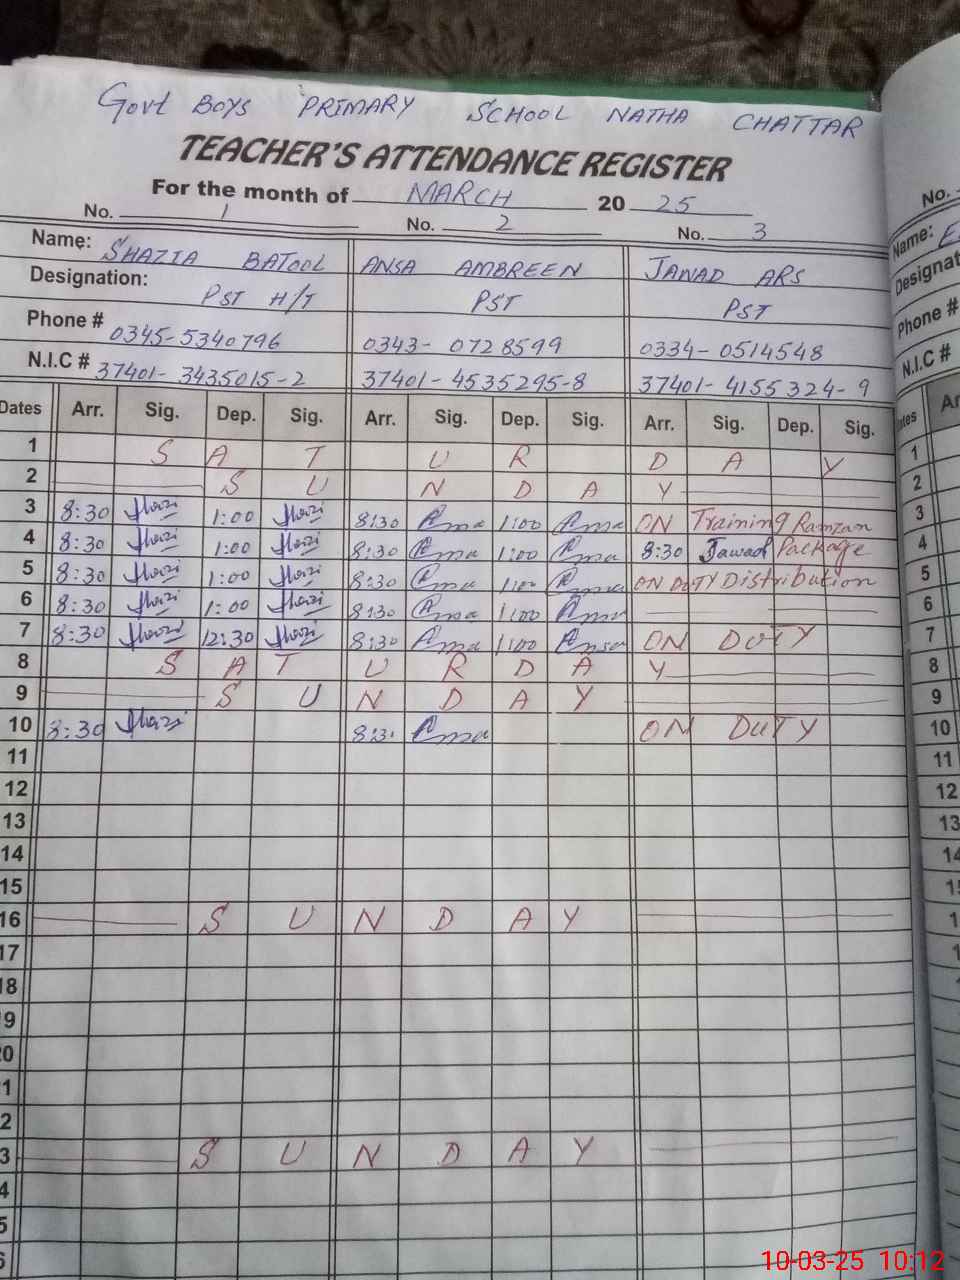 Govt BOYS PRIMARY SCHOOL NATHA CHATTAR
TEACHER'S ATTENDANCE REGISTER
For the month of MARCH 20 25
No. 1 No. 2 No. 3
Name: SHAZIA BATOOL ANSA AMBREEN JAWAD ARS
Designation: PST H/T PST PST
Phone # 0345-5340796 0343-0728599 0334-0514548
N.I.C # 37401-3435015-2 37401-4535295-8 37401-4155324-9
Dates Arr. Sig. Dep. Sig. Arr. Sig. Dep. Sig. Arr. Sig. Dep. Sig.
1 S A T U R D A Y
2 S U N D A Y
3 8:30 1:00 8:30 1:00 ON Training Ramzan
4 8:30 1:00 8:30 1:00 8:30 Jawad Package
5 8:30 1:00 8:30 1:00 ON DUTY Distribution
6 8:30 1:00 8:30 1:00
7 8:30 12:30 8:30 1:00 ON DUTY
8 S A T U R D A Y
9 S U N D A Y
10 8:30 8:3 ON DUTY
11
12
13
14
15
16 S U N D A Y
17
18
9
0
1
2
3 S U N D A Y
4
5
6
No.
Name:
Designat
Phone #
N.I.C #
tes Ar
1
2
3
4
5
6
7
8
9
10
11
12
13
14
10-03-25 10:12